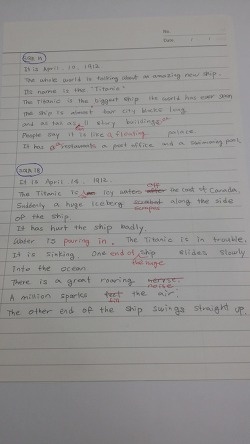 No.
Date
It is April, 10, 1912
The whole world is talking about an amazing new ship.
Its name is the "Titanic"
The Titanic is the biggest ship the world has ever seen
The ship is almost four city blocks long
and as tall as 11 story buildings
People say it is like a floating palace.
It has restaurants a post office and a swimming pool.
It is April 14. 1912
The Titanic is in icy waters off the coast of Canada.
Suddenly A huge iceberg scrapes along the side
of the ship
It has hurt the ship badly.
Water is pouring in. The Titanic is in trouble.
It is sinking One end of the huge ship slides slowly
Into the ocean
There is a great roaring noise.
A million sparks fill the air.
The other end of the ship swings straight up.